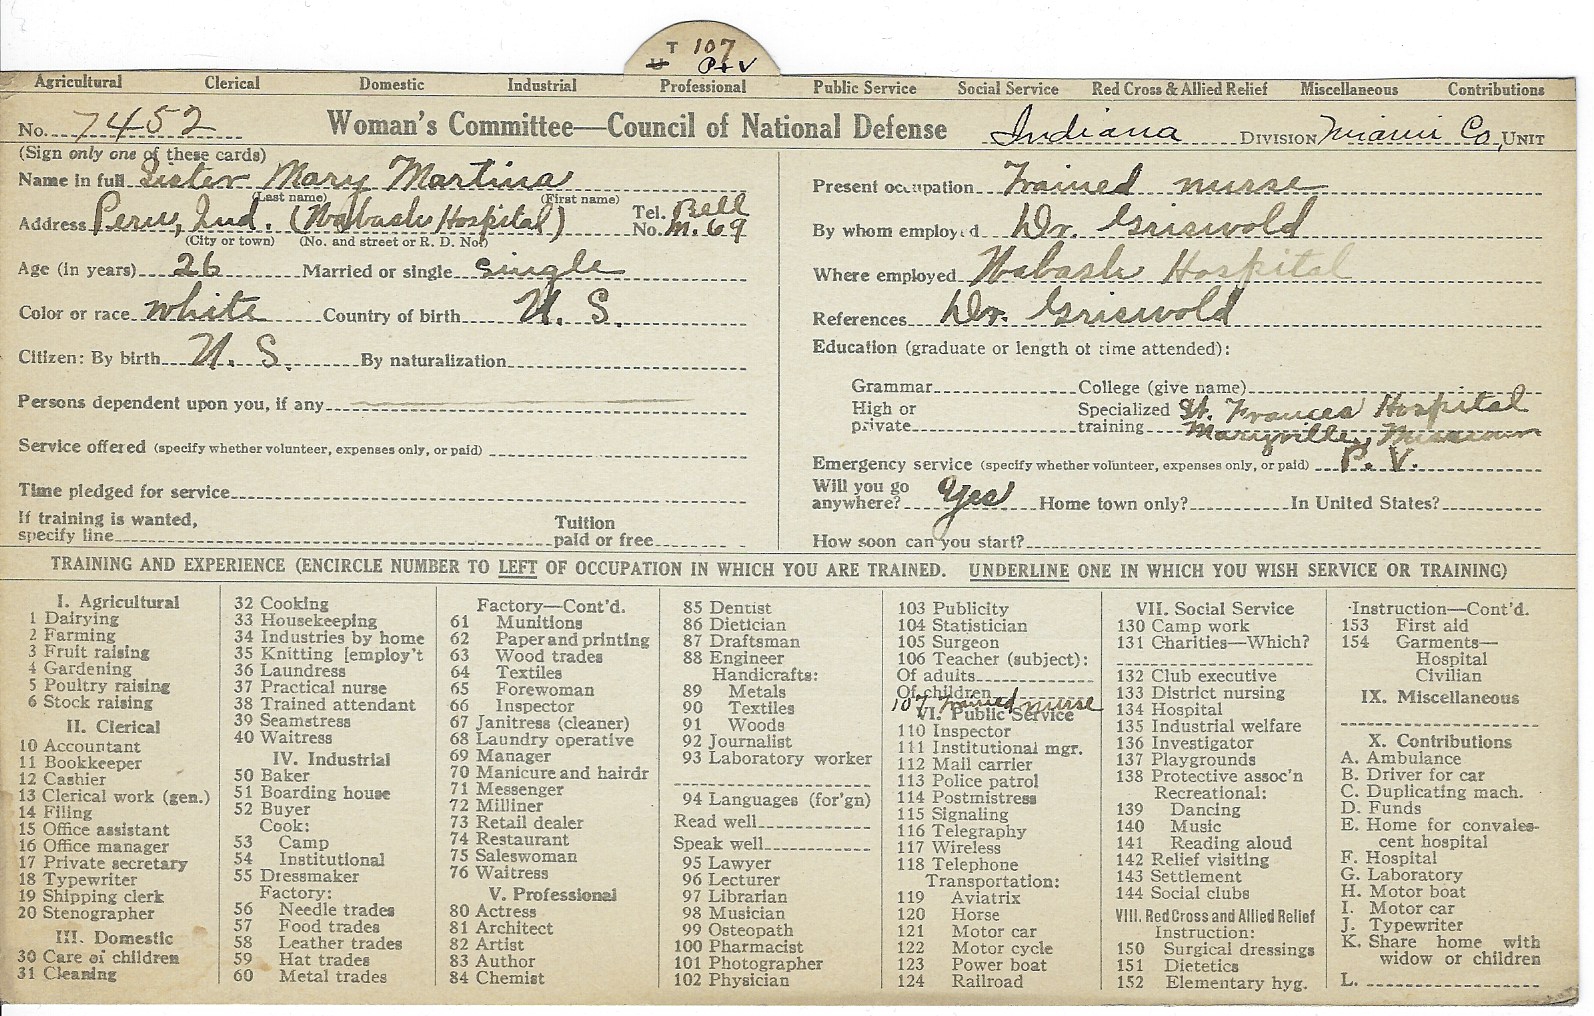 T 107
U P+V
Agricultural Clerical Domestic Industrial Professional Public Service Social Service Red Cross & Allied Relief Miscellaneous Contributions
No. 7452 Woman's Committee—Council of National Defense Indiana DIVISION Miami Co, UNIT
(Sign only one of these cards)
Name in full Sister Mary Martina
(Last name) (First name)
Address Peru, Ind. (Wabash Hospital) Tel. No. Bell M. 69
(City or town) (No. and street or R. D. No.)
Age (in years) 26 Married or single single
Color or race white Country of birth U. S.
Citizen: By birth U. S. By naturalization
Persons dependent upon you, if any
Service offered (specify whether volunteer, expenses only, or paid)
Time pledged for service
If training is wanted, specify line Tuition paid or free
Present occupation Trained nurse
By whom employed Dr. Griswold
Where employed Wabash Hospital
References Dr. Griswold
Education (graduate or length of time attended):
Grammar College (give name)
High or private Specialized training St. Frances Hospital
Maryville, Missouri
Emergency service (specify whether volunteer, expenses only, or paid) P. V.
Will you go anywhere? Yes Home town only? In United States?
How soon can you start?
TRAINING AND EXPERIENCE (ENCIRCLE NUMBER TO LEFT OF OCCUPATION IN WHICH YOU ARE TRAINED. UNDERLINE ONE IN WHICH YOU WISH SERVICE OR TRAINING)
I. Agricultural
1 Dairying
2 Farming
3 Fruit raising
4 Gardening
5 Poultry raising
6 Stock raising
II. Clerical
10 Accountant
11 Bookkeeper
12 Cashier
13 Clerical work (gen.)
14 Filing
15 Office assistant
16 Office manager
17 Private secretary
18 Typewriter
19 Shipping clerk
20 Stenographer
III. Domestic
30 Care of children
31 Cleaning
32 Cooking
33 Housekeeping
34 Industries by home
35 Knitting [employ't
36 Laundress
37 Practical nurse
38 Trained attendant
39 Seamstress
40 Waitress
IV. Industrial
50 Baker
51 Boarding house
52 Buyer
Cook:
53 Camp
54 Institutional
55 Dressmaker
Factory:
56 Needle trades
57 Food trades
58 Leather trades
59 Hat trades
60 Metal trades
Factory—Cont'd.
61 Munitions
62 Paper and printing
63 Wood trades
64 Textiles
65 Forewoman
66 Inspector
67 Janitress (cleaner)
68 Laundry operative
69 Manager
70 Manicure and hairdr
71 Messenger
72 Milliner
73 Retail dealer
74 Restaurant
75 Saleswoman
76 Waitress
V. Professional
80 Actress
81 Architect
82 Artist
83 Author
84 Chemist
85 Dentist
86 Dietician
87 Draftsman
88 Engineer
Handicrafts:
89 Metals
90 Textiles
91 Woods
92 Journalist
93 Laboratory worker
94 Languages (for'gn)
Read well
Speak well
95 Lawyer
96 Lecturer
97 Librarian
98 Musician
99 Osteopath
100 Pharmacist
101 Photographer
102 Physician
103 Publicity
104 Statistician
105 Surgeon
106 Teacher (subject):
Of adults
Of children
107 Trained nurse
VI. Public Service
110 Inspector
111 Institutional mgr.
112 Mail carrier
113 Police patrol
114 Postmistress
115 Signaling
116 Telegraphy
117 Wireless
118 Telephone
Transportation:
119 Aviatrix
120 Horse
121 Motor car
122 Motor cycle
123 Power boat
124 Railroad
VII. Social Service
130 Camp work
131 Charities—Which?
132 Club executive
133 District nursing
134 Hospital
135 Industrial welfare
136 Investigator
137 Playgrounds
138 Protective assoc'n
Recreational:
139 Dancing
140 Music
141 Reading aloud
142 Relief visiting
143 Settlement
144 Social clubs
VIII. Red Cross and Allied Relief
Instruction:
150 Surgical dressings
151 Dietetics
152 Elementary hyg.
Instruction—Cont'd.
153 First aid
154 Garments—
Hospital
Civilian
IX. Miscellaneous
X. Contributions
A. Ambulance
B. Driver for car
C. Duplicating mach.
D. Funds
E. Home for convales-
cent hospital
F. Hospital
G. Laboratory
H. Motor boat
I. Motor car
J. Typewriter
K. Share home with
widow or children
L.